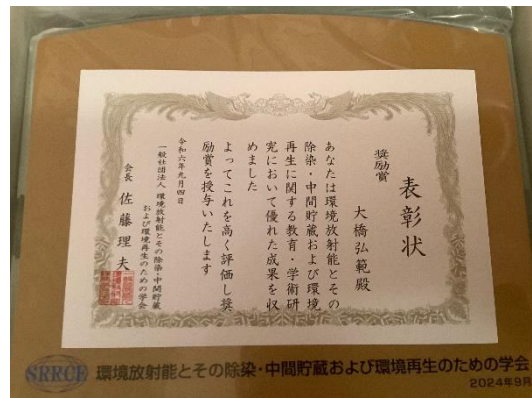 表彰状
奨励賞
大橋弘範殿
あなたは環境放射能とその
除染・中間貯蔵および環境
再生に関する教育・学術研
究において優れた成果を収
めました
よってこれを高く評価し奨
励賞を授与いたします
令和六年九月四日
一般社団法人 環境放射能とその除染・中間貯蔵
および環境再生のための学会
会長 佐藤理夫
SRRCE 環境放射能とその除染・中間貯蔵および環境再生のための学会
2024年9月